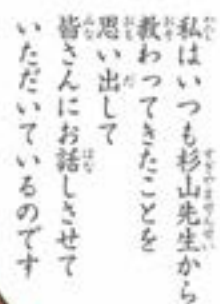 私はいつも杉山先生から
教わってきたことを
思い出して
皆さんにお話しさせて
いただいているのです